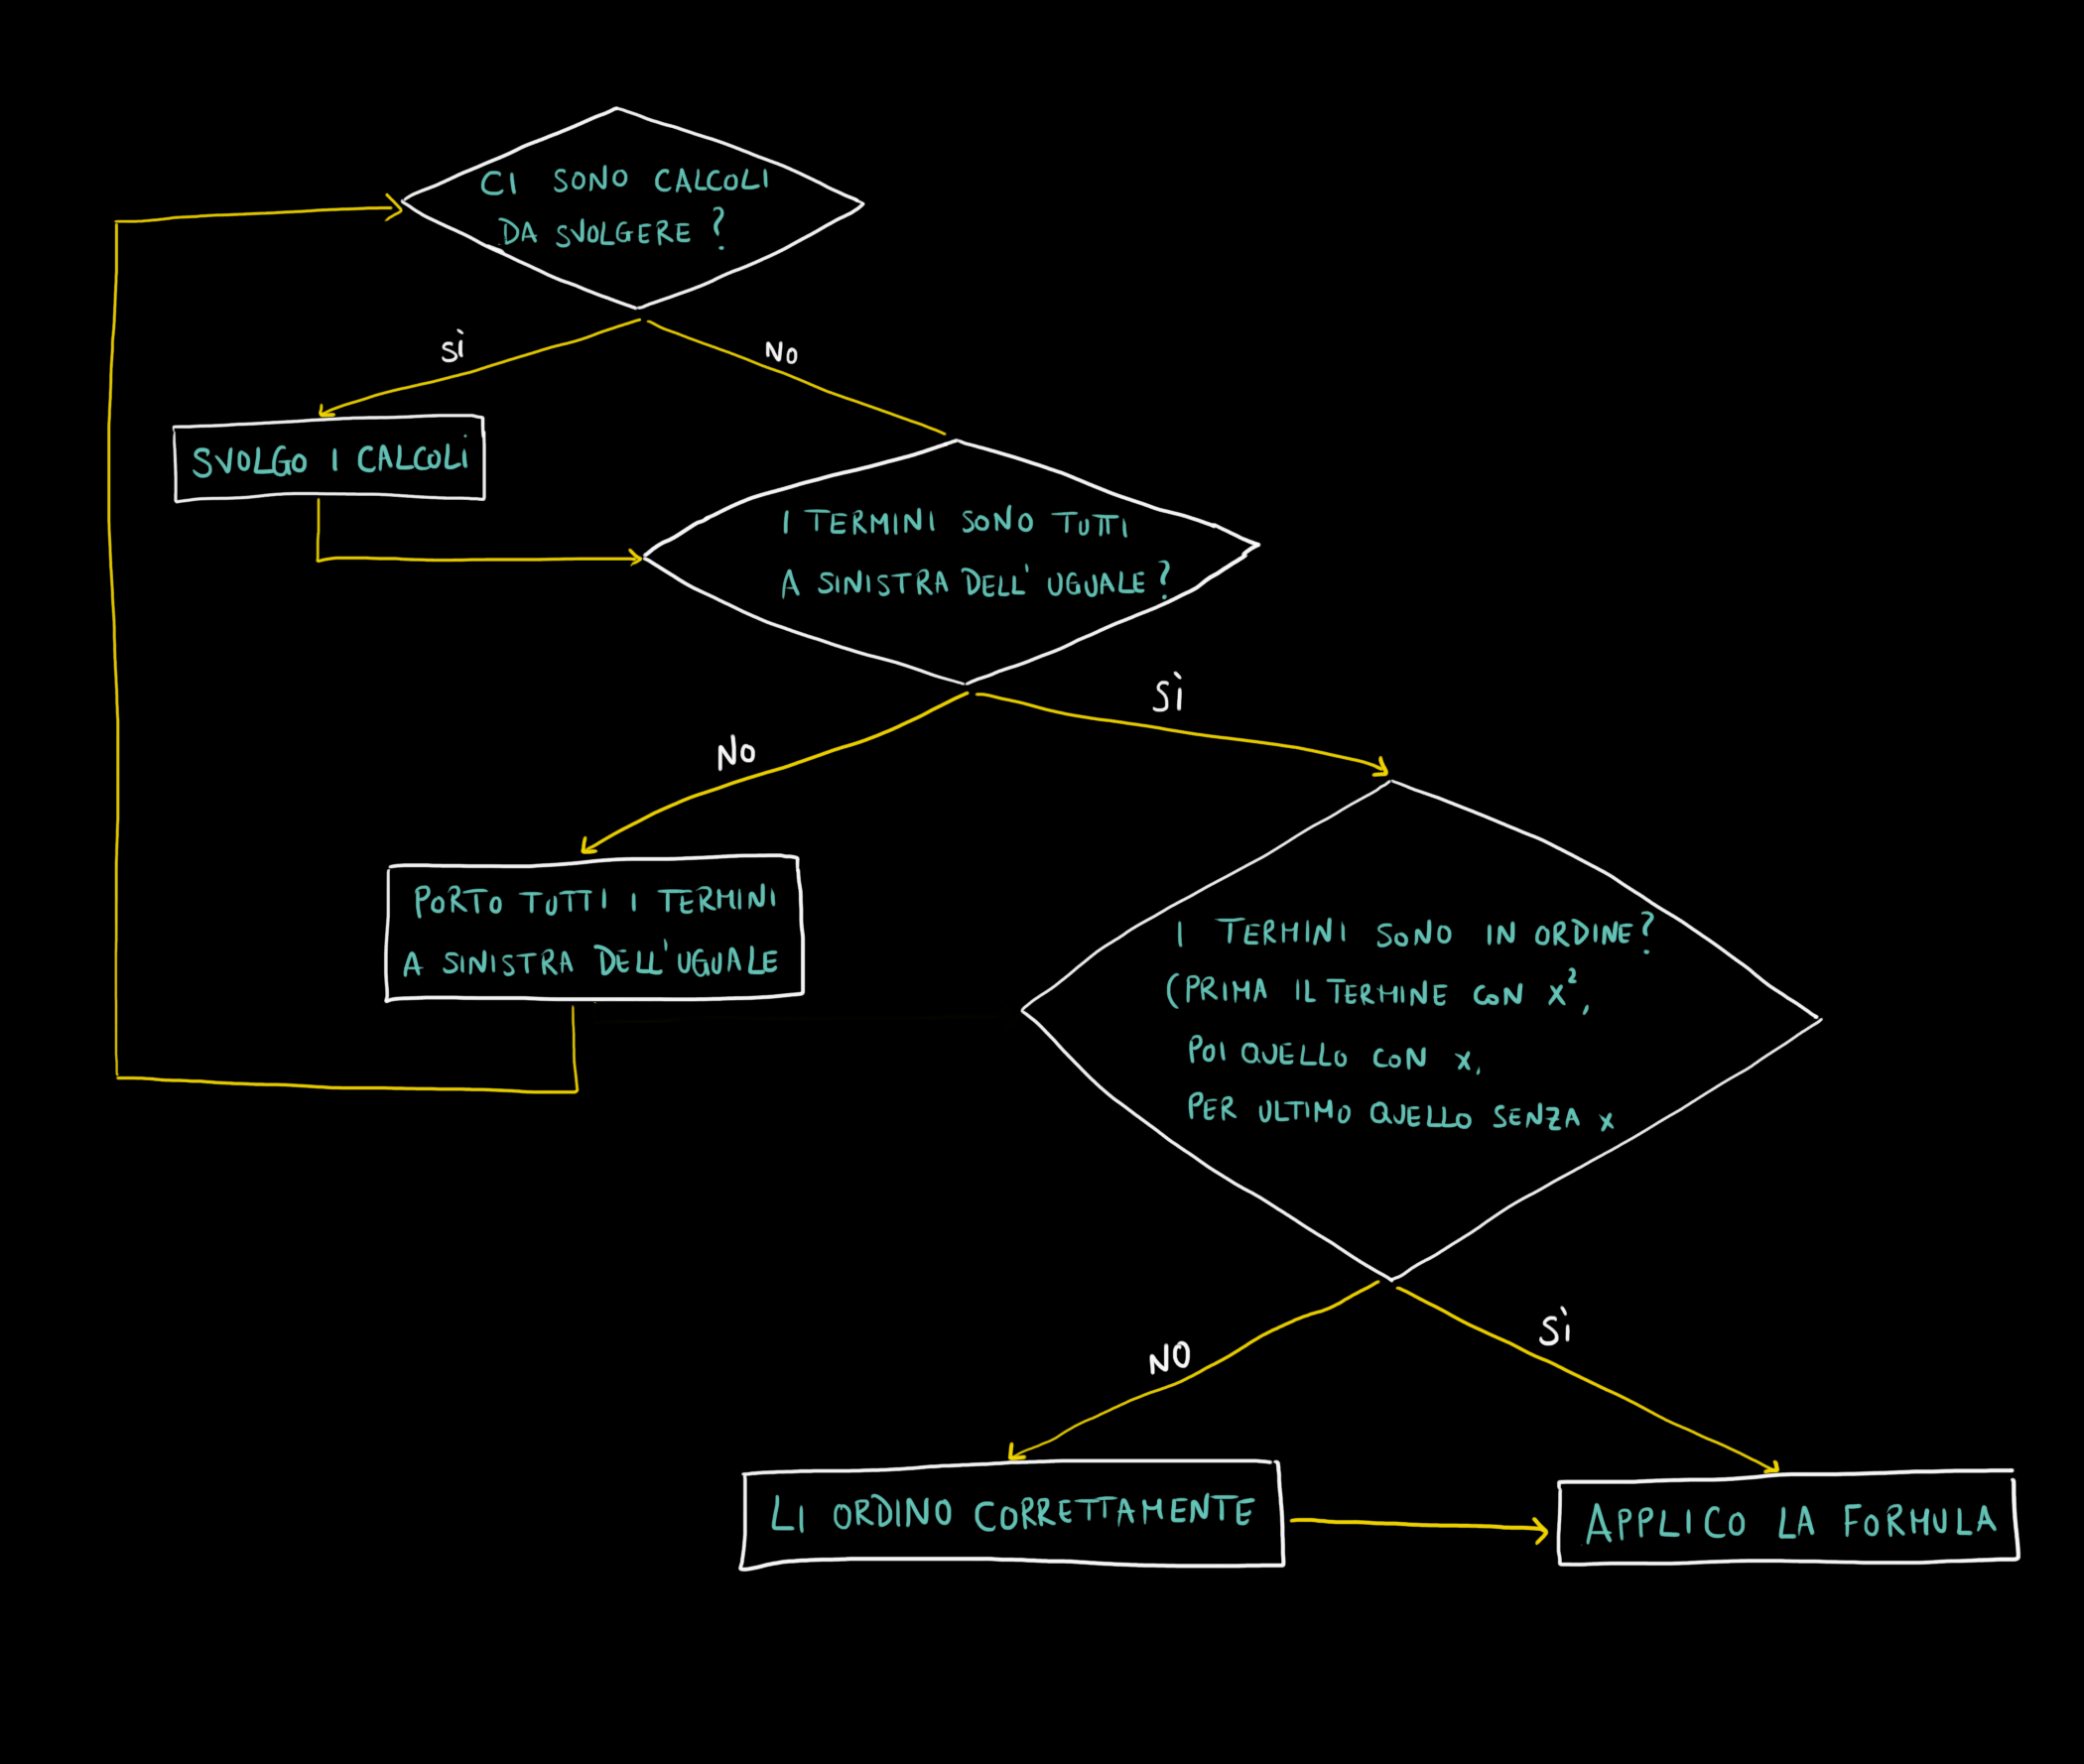 CI SONO CALCOLI
DA SVOLGERE ?
SÌ
NO
SVOLGO I CALCOLI
I TERMINI SONO TUTTI
A SINISTRA DELL' UGUALE ?
SÌ
NO
PORTO TUTTI I TERMINI
A SINISTRA DELL'UGUALE
I TERMINI SONO IN ORDINE?
(PRIMA IL TERMINE CON X²,
POI QUELLO CON X,
PER ULTIMO QUELLO SENZA X
NO
SÌ
LI ORDINO CORRETTAMENTE
APPLICO LA FORMULA